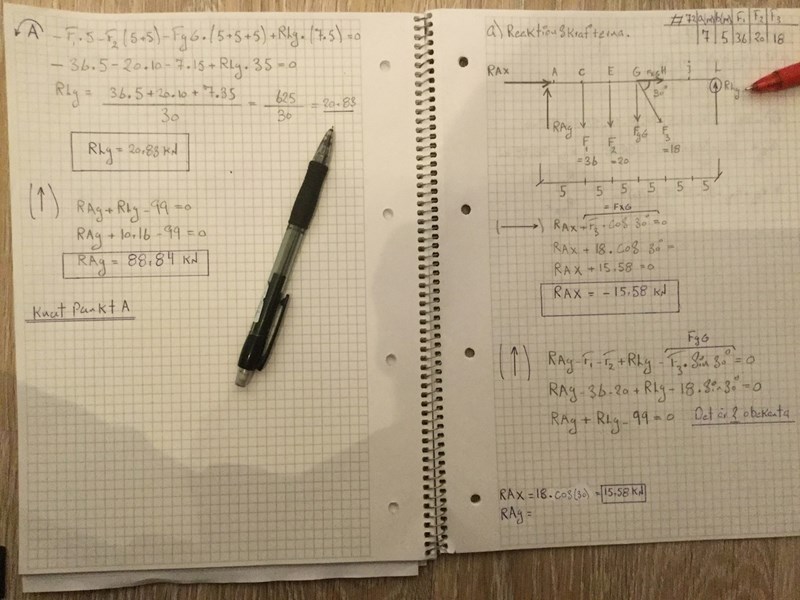 A
- F₁·5 - F₂(5+5) - FyG·(5+5+5) + RLy·(7.5) = 0
- 36.5 - 20.10 - 7.15 + RLy.35 = 0
RLy = 36.5 + 20.10 + 7.35 / 30 = 625 / 30 = 20.83
RLy = 20,83 kN
(↑) RAy + RLy - 99 = 0
RAy + 10.16 - 99 = 0
RAy = 88,84 kN
Knut Punkt A
a) Reaktionskrafterna.
#72 a(m) b(m) F₁ F₂ F₃
7 5 36 20 18
RAX A C E G H J L RLy
30°
RAy F₁ F₂ FyG F₃
=36 =20 =18
5 5 5 5 5 5
= FxG
(→) RAX + F₃·cos 30° = 0
RAX + 18.cos 30° =
RAX + 15.58 = 0
RAX = -15.58 kN
FyG
(↑) RAy - F₁ - F₂ + RLy - F₃·sin 30° = 0
RAy - 36 - 20 + RLy - 18.sin 30° = 0
RAy + RLy - 99 = 0 Det är 2 obekanta
RAX = 18.cos(30) = 15,58 kN
RAy =